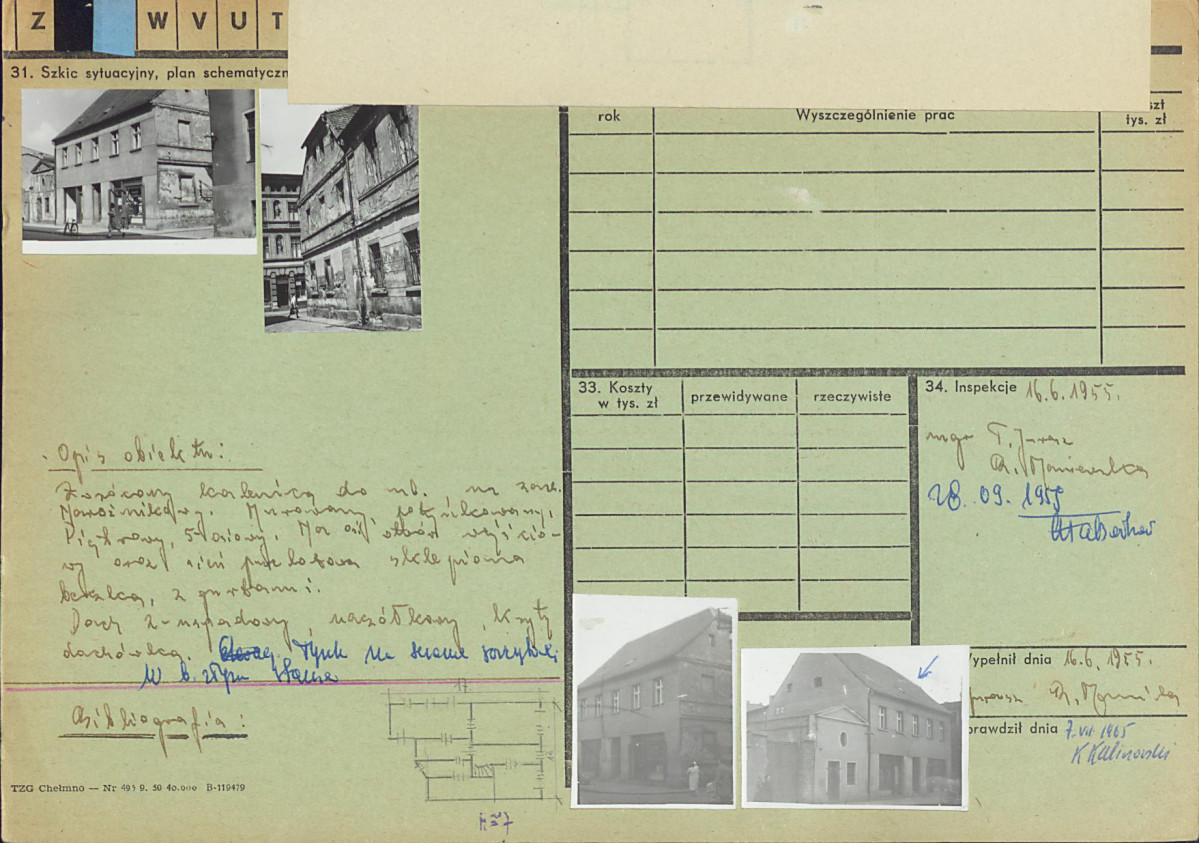 Z W V U T
31. Szkic sytuacyjny, plan schematyczn
rok
Wyszczególnienie prac
szt
tys. zł
33. Koszty
w tys. zł
przewidywane
rzeczywiste
34. Inspekcje 16.6.1955.
mgr T.
28. 09. 1959
Opis obiektu:
Zwrócony kalenicą do ul. na
Murowany, otynkowany.
Piętrowy, 5-osiowy. Na osi otwór wejścio-
wy oraz sień przelotowa sklepiona
beczką, z gurtami.
Dach 2-spadowy, naczółkowy, kryty
dachówką. Tynk na
w b. złym stanie
Bibliografia:
ypełnił dnia 16.6.1955.
prawdził dnia 7.VII 1965
K Kalinowski
TZG Chełmno — Nr 495 9. 50 40.000 B-119479